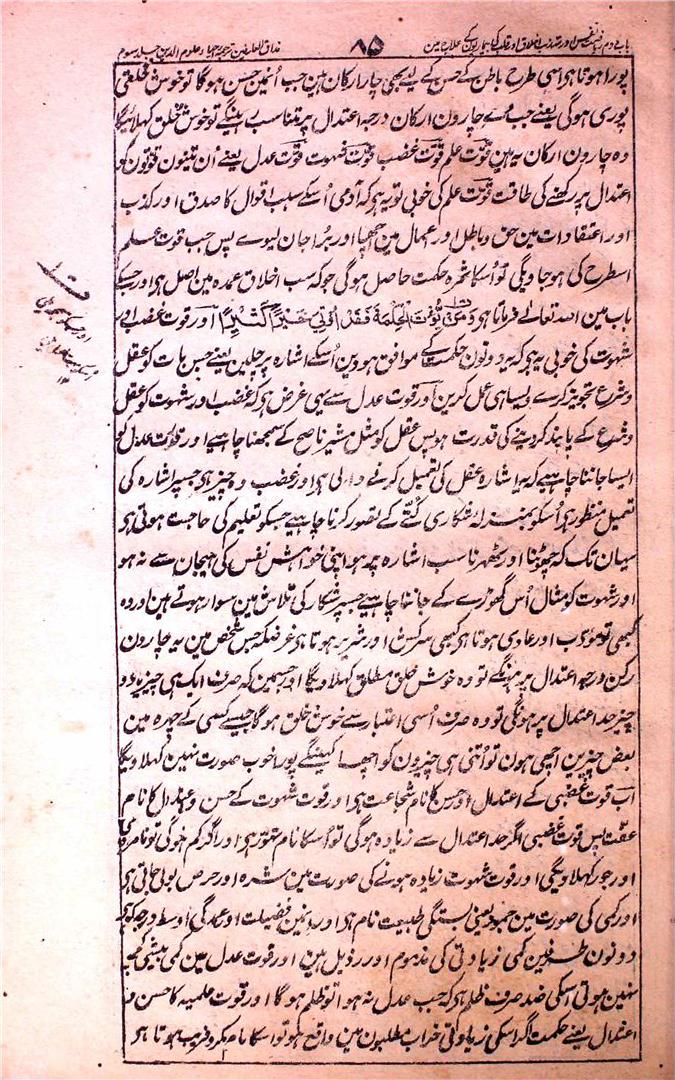 باب دوم ریاضت نفس اور تہذیب اخلاق اور قلب کی بیماریون کے علاج مین
۸۵
مذاق العارفین ترجمہ احیاء علوم الدین جلد سوم
پورا ہوتا ہی اسی طرح باطن کے حسن کے لیے بھی چار ارکان ہین جب اُنمین حسن ہوگا تو خوش خلقی
پوری ہوگی یعنے جب وے چارون ارکان درجہ اعتدال پر متناسب ہونگے تو خوش خلق کہلائیگا
وہ چارون ارکان یہ ہین قوت علم قوت غضب قوت شہوت قوت عدل یعنے اُن تینون قوتون کو
اعتدال پر رکھنے کی طاقت قوت علم کی خوبی تو یہ ہی کہ آدمی اُسکے سبب اقوال کا صدق اور کذب
اور اعتقادات مین حق و باطل اور اعمال مین اچھا اور بُرا جان لیوے پس جب قوت علم
اسطرح کی ہو جاویگی تو اُسکا ثمرہ حکمت حاصل ہوگی جو کہ سب اخلاق عمدہ مین اصل ہی اور جسکے
باب مین اللہ تعالے فرماتا ہی وَمَنْ یُّؤْتَ الْحِكْمَةَ فَقَدْ اُوْتِیَ خَیْرًا كَثِیْرًا اور قوت غضب اور
شہوت کی خوبی یہ ہی کہ یہ دونون حکمت کے موافق ہووین اُسکے اشارہ پر چلین یعنے جس بات کو عقل
و شرع تجویز کرے ویسا ہی عمل کرین اور قوت عدل سے یہی غرض ہی کہ غضب اور شہوت کو عقل
و شرع کے پابند کر دینے کی قدرت ہو پس عقل کو مثل مشیر ناصح کے سمجھنا چاہیے اور قوت عدل کو
ایسا جاننا چاہیے کہ یہ اشارہ عقل کی تعمیل کرنے والی ہی اور غضب وہ چیز ہی جسپر اشارہ کی
تعمیل منظور ہی اُسکو بمنزلہ شکاری کُتّے کے تصور کرنا چاہیے جسکو تعلیم کی حاجت ہوتی ہی
یہان تک کہ چھوٹنا اور ٹھہرنا سب اشارہ پر ہو اپنی خواہش نفس کی ہیجان سے نہ ہو
اور شہوت کو مثال اُس گھوڑے کے جاننا چاہیے جسپر شکار کی تلاش مین سوار ہوتے ہین اور وہ
کبھی تو مؤدب اور عادی ہوتا ہی کبھی سرکش اور شریر ہوتا ہی غرضکہ جس شخص مین یہ چارون
رکن درجہ اعتدال پر ہونگے تو وہ خوش خلق مطلق کہلاویگا اور جسمین کہ صرف ایک ہی چیز یا دو
چیز حد اعتدال پر ہونگی تو وہ صرف اُسی اعتبار سے خوش خلق ہوگا جیسے کسی کے چہرہ مین
بعض چیزین اچھی ہون تو اُتنی ہی چیزون کو اچھا کہینگے پورا خوب صورت نہین کہلاویگا
اب قوت غضبی کے اعتدال اور حسن کا نام شجاعت ہی اور قوت شہوت کے حسن و اعتدال کا نام
عفّت پس قوت غضبی اگر حد اعتدال سے زیادہ ہوگی تو اُسکا نام تہور ہی اور اگر کم ہوگی تو نامردی
اور جور کہلاویگی اور قوت شہوت زیادہ ہونے کی صورت مین شرہ اور حرص بولی جاتی ہی
اور کمی کی صورت مین جمود یعنی بستگی طبیعت نام ہی اور ان مین فضیلت اور عمدگی اوسط درجہ کو ہی
دونون طرفین کمی زیادتی کی مذموم اور رذیل ہین اور قوت عدل مین کمی بیشی کچھ
نہین ہوتی اسکی ضد صرف ظلم ہی کہ جب عدل نہ ہوا تو ظلم ہوگا اور قوت علمیہ کا حسن و
اعتدال یعنے حکمت اگر اسکی زیادتی خراب مطلبون مین واقع ہو تو اسکا نام مکر و فریب ہوتا ہی